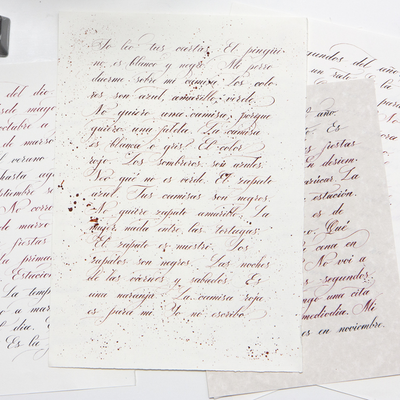 Yo leo tus cartas. El pingüi-
no es blanco y negro. Mi perro
duerme sobre mi camisa. Los colo-
res son azul, amarillo, verde.
No quiero una camisa, porque
quiero una falda. La camisa
es blanca o gris? El color
rojo. Los sombreros son azules.
No, qui no es verde. El zapato
azul. Tus camisas son negras.
No quiero zapato amarillo. La
mujer nada entre las tortugas.
El zapato es nuestro. Los
zapatos son negros. Las noches
de las viernes y sabados. Es
una naranja. La camisa roja
es para mi. Yo no escribo
del dia.
desde mayo
octubre a
de marzo
verano
hasta ago
septiembre se
No corro
de marzo
fiestas
la prima
Estacion
La temp
a mar
dia. E
Es la
mundos del año
un rato
año.
Es
fiestas
El diciem
La
estación.
es de
Qué
cena en
No voi a
segundos.
tengo una cita
mediodia. Mi
es en noviembre.